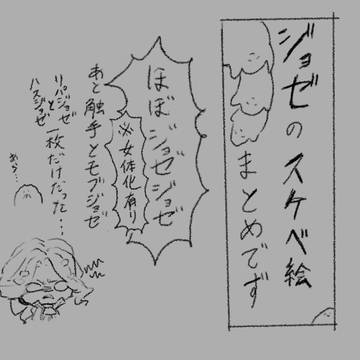 ジョゼのスケベ絵
まとめでず
ほぼジョゼジョゼ
※女体化有り
あと触手とモブジョゼ
リパジョゼと
ハスジョゼ
一枚だけだった…
あら…